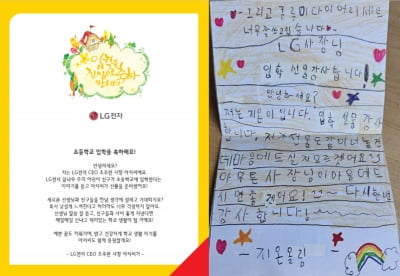 입학을
진심으로 축하
합니다!
LG전자
초등학교 입학을 축하해요!
안녕하세요?
저는 LG전자 CEO 조주완 사장 아저씨예요.
LG전자 우리 어린이 친구가 초등학교에 입학한다는
이야기를 듣고 아저씨가 선물을 준비했어요!
새로운 선생님과 친구들을 만날 생각에 설레고 기대되지요?
혹시 낯설게 느껴진다고 하더라도 너무 걱정하지 말아요.
선생님 말씀 잘 듣고, 친구들과 사이 좋게 지낸다면
매일매일 신나고 재미있는 학교 생활이 될 거예요!
예쁜 꿈도 키워가며, 밝고 건강하게 학교 생활 하기를
아저씨도 함께 응원할게요!
- LG전자 CEO 조주완 사장 아저씨가 -
-그리고 루루미 다이어리 세트
너무 잘 쓰고있습니다
LG사장님
입학 선물 감사합니다!
안녕하세요?
저는 지온이 입니다. 입학 선물 감사
합니다, 저가 선물도
데 마음에 드실지 모르겠어요
아무튼 사장님이 마음에 드
시면 좋겠어요! 다시한번
감사합니다!
-지온올림-